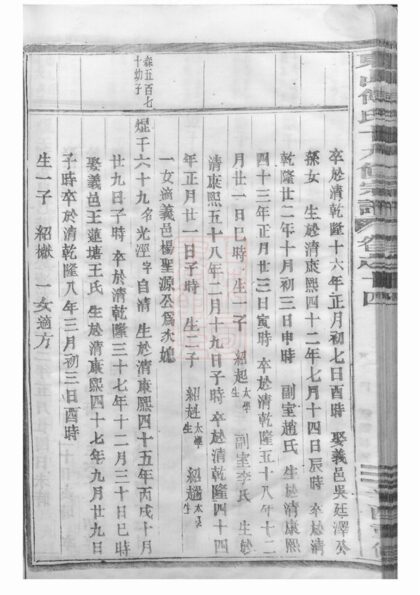 卒於清乾隆十六年正月初七日酉時 娶義邑吳廷澤公
孫女 生於清康熙四十二年七月十四日辰時 卒於清
乾隆廿二年十月初三日申時 副室趙氏 生於清康熙
四十三年正月廿三日寅時 卒於清乾隆五十八年十二
月廿一日巳時 生一子 紹起太學生 副室李氏 生於
清康熙五十八年二月十九日子時 卒於清乾隆四十四
年正月廿一日子時 生二子 紹赶太學生 紹趨太學生
一女適義邑楊聖源公為次媳
森五百七十幼子
焜千六十九 名光涇字自清 生於清康熙四十五年丙戌十月
廿九日子時 卒於清乾隆三十七年十二月三十日巳時
娶義邑王蓮塘王氏 生於清康熙四十七年九月廿九日
子時卒於清乾隆八年三月初三日酉時
生一子 紹 一女適方